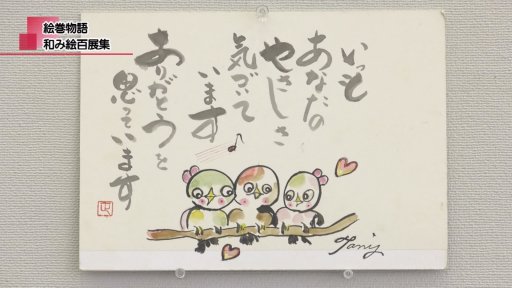 絵巻物語
和み絵百展集
いつも
あなたの
やさしさ
気づいて
います
ありがとうと
思っています